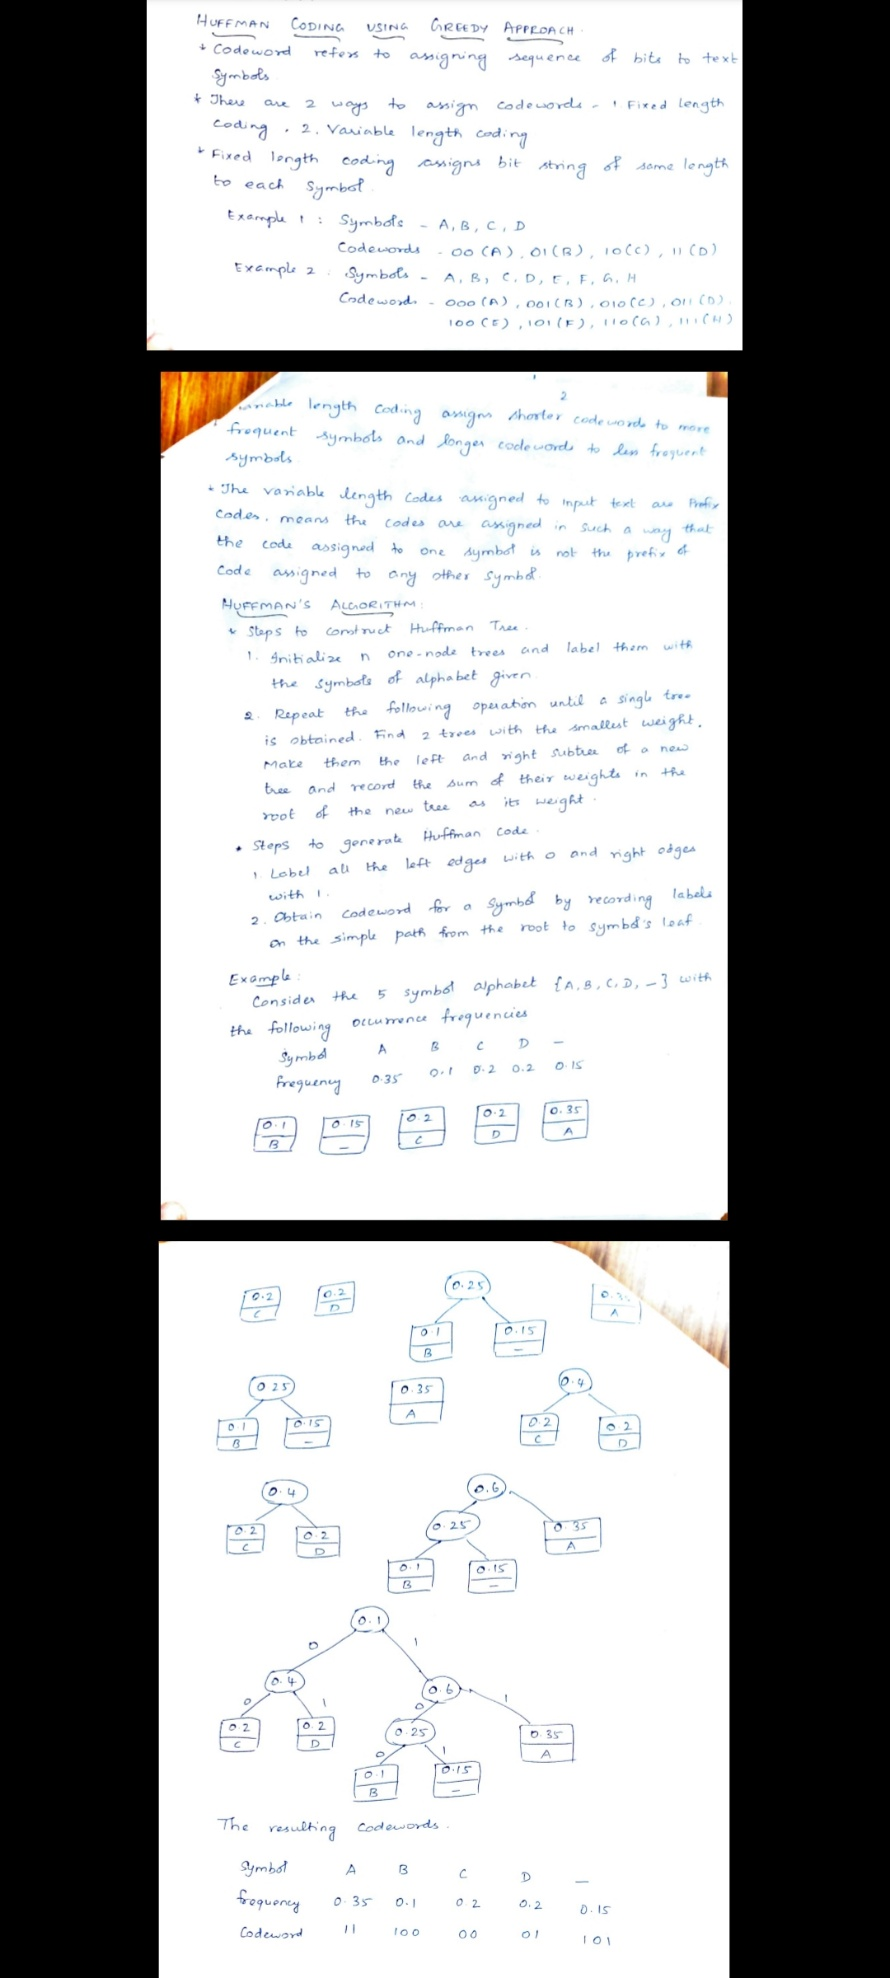 HUFFMAN CODING USING GREEDY APPROACH.
* Codeword refers to assigning sequence of bits to text
symbols
* There are 2 ways to assign codewords - 1 Fixed length
coding, 2. Variable length coding
* Fixed length coding assigns bit string of same length
to each symbol.
Example 1 : Symbols - A, B, C, D
Codewords - 00 (A), 01(B), 10(C), 11(D)
Example 2 : Symbols - A, B, C, D, E, F, G, H
Codewords - 000 (A), 001(B), 010(C), 011(D),
100(E), 101(F), 110(G), 111(H)
2
length coding assigns shorter codewords to more
frequent symbols and longer codewords to less frequent
symbols
* The variable length codes assigned to input text are Prefix
codes, means the codes are assigned in such a way that
the code assigned to one symbol is not the prefix of
code assigned to any other symbol.
HUFFMAN'S ALGORITHM:
* Steps to construct Huffman Tree.
1. Initialize n one-node trees and label them with
the symbols of alphabet given.
2. Repeat the following operation until a single tree
is obtained. Find 2 trees with the smallest weight.
Make them the left and right subtree of a new
tree and record the sum of their weights in the
root of the new tree as its weight.
* Steps to generate Huffman Code.
1. Label all the left edges with 0 and right edges
with 1.
2. Obtain codeword for a symbol by recording labels
on the simple path from the root to symbol's leaf.
Example:
Consider the 5 symbol alphabet {A, B, C, D, -} with
the following occurrence frequencies
Symbol A B C D -
frequency 0.35 0.1 0.2 0.2 0.15
0.1 0.15 0.2 0.2 0.35
B - C D A
0.2 0.2 0.25 0.3
C D A
0.1 0.15
B -
0.25 0.35 0.4
A
0.1 0.15 0.2 0.2
B - C D
0.4 0.6
0.2 0.2 0.25 0.35
C D A
0.1 0.15
B -
0.1
0 1
0.4 0.6
0 1 0 1
0.2 0.2 0.25 0.35
C D A
0 1
0.1 0.15
B -
The resulting codewords.
Symbol A B C D -
frequency 0.35 0.1 0.2 0.2 0.15
Codeword 11 100 00 01 101